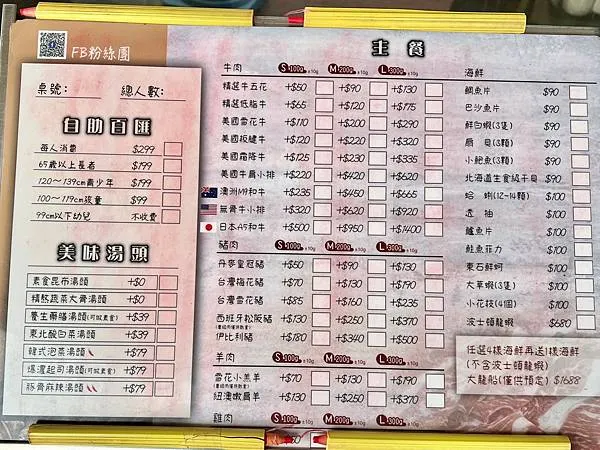 FB粉絲團
桌號: 總人數:
自助百匯
每人消費 $299
65歲以上長者 $199
120~139cm青少年 $199
100~119cm孩童 $99
99cm以下幼兒 不收費
美味湯頭
素食昆布湯頭 +$0
精熬蔬菜大骨湯頭 +$0
養生藥膳湯頭(可做素食) +$39
東北酸白菜湯頭 +$39
韓式泡菜湯頭 +$79
爆濃起司湯頭(可做素食) +$79
豚骨麻辣湯頭 +$79
主餐
牛肉 S 100g ±10g M 200g ±10g L 300g ±10g
精選牛五花 +$50 +$90 +$130
精選低脂牛 +$65 +$120 +$175
美國雪花牛 +$110 +$200 +$290
美國板腱牛 +$120 +$220 +$320
美國霜降牛 +$125 +$230 +$335
美國牛肩小排 +$220 +$420 +$620
澳洲M9和牛 +$235 +$450 +$665
無骨牛小排 +$320 +$620 +$920
日本A5和牛 +$500 +$950 +$1400
豬肉 S 100g ±10g M 200g ±10g L 300g ±10g
丹麥皇冠豬 +$50 +$90 +$130
台灣梅花豬 +$70 +$130 +$190
台灣雪花豬 +$85 +$160 +$235
西班牙松阪豬 +$130 +$250 +$370
伊比利豬 +$180 +$340 +$500
羊肉 S 100g ±10g M 200g ±10g L 300g ±10g
雪花小羔羊 +$70 +$130 +$190
紐澳嫩肩羊 +$130 +$250 +$370
雞肉 S 100g ±10g M 200g ±10g L 300g ±10g
海鮮
鯛魚片 $90
巴沙魚片 $90
鮮白蝦(3隻) $90
扇貝(3顆) $90
小鮑魚(3顆) $90
北海道生食級干貝 $90
蛤蜊(12~14顆) $100
透抽 $100
鱸魚片 $100
鮭魚菲力 $100
東石鮮蚵 $100
大草蝦(3隻) $100
小花枝(4個) $100
波士頓龍蝦 $680
任選4樣海鮮再送1樣海鮮
(不含波士頓龍蝦)
大龍船(僅供預定) $1688